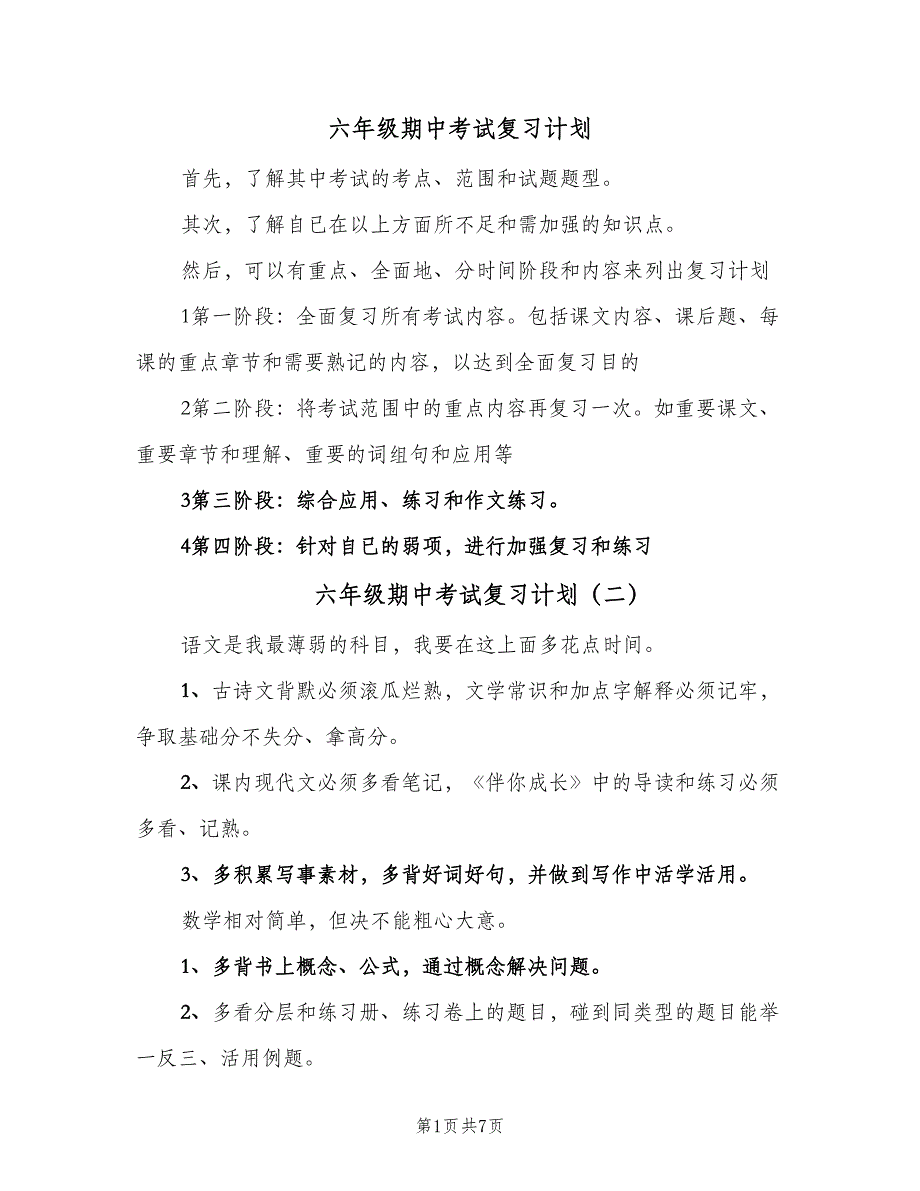 六年级期中考试复习计划
首先，了解其中考试的考点、范围和试题题型。
其次，了解自已在以上方面所不足和需加强的知识点。
然后，可以有重点、全面地、分时间阶段和内容来列出复习计划
1第一阶段：全面复习所有考试内容。包括课文内容、课后题、每
课的重点章节和需要熟记的内容，以达到全面复习目的
2第二阶段：将考试范围中的重点内容再复习一次。如重要课文、
重要章节和理解、重要的词组句和应用等
3第三阶段：综合应用、练习和作文练习。
4第四阶段：针对自己的弱项，进行加强复习和练习
六年级期中考试复习计划（二）
语文是我最薄弱的科目，我要在这上面多花点时间。
1、古诗文背默必须滚瓜烂熟，文学常识和加点字解释必须记牢，
争取基础分不失分、拿高分。
2、课内现代文必须多看笔记，《伴你成长》中的导读和练习必须
多看、记熟。
3、多积累写事素材，多背好词好句，并做到写作中活学活用。
数学相对简单，但决不能粗心大意。
1、多背书上概念、公式，通过概念解决问题。
2、多看分层和练习册、练习卷上的题目，碰到同类型的题目能举
一反三、活用例题。
第1页共7页